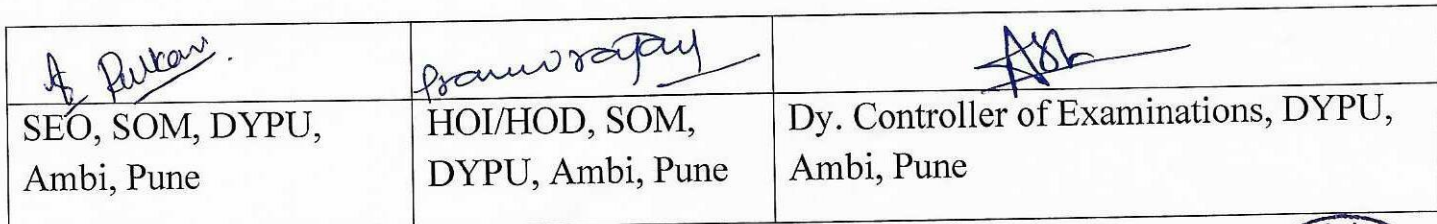 SEO, SOM, DYPU,
Ambi, Pune
HOI/HOD, SOM,
DYPU, Ambi, Pune
Dy. Controller of Examinations, DYPU,
Ambi, Pune